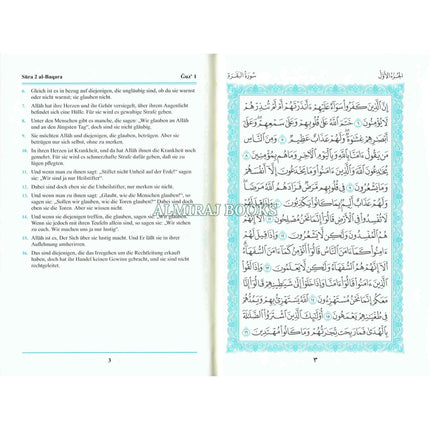 Sūra 2 al-Baqara
Ǧuzʾ 1
6. Gleich ist es in bezug auf diejenigen, die ungläubig sind, ob du sie warnst
oder nicht warnst; sie glauben nicht.
7. Allāh hat ihre Herzen und ihr Gehör versiegelt, über ihrem Augenlicht
befindet sich eine Hülle. Für sie wird es gewaltige Strafe geben.
8. Unter den Menschen gibt es manche, die sagen: „Wir glauben an Allāh
und an den Jüngsten Tag", doch sind sie nicht gläubig.
9. Sie möchten Allāh und diejenigen, die glauben, betrügen. Aber sie
betrügen nur sich selbst, ohne zu merken.
10. In ihren Herzen ist Krankheit, und da hat Allāh ihnen die Krankheit noch
gemehrt. Für sie wird es schmerzhafte Strafe dafür geben, daß sie zu
lügen pflegten.
11. Und wenn man zu ihnen sagt: „Stiftet nicht Unheil auf der Erde!" sagen
sie: „Wir sind ja nur Heilstifter".
12. Dabei sind doch eben sie die Unheilstifter, nur merken sie nicht.
13. Und wenn man zu ihnen sagt: „Glaubt, wie die Menschen glauben!" so
sagen sie: „Sollen wir glauben, wie die Toren glauben?" Dabei sind doch
eben sie die Toren, aber sie wissen nicht.
14. Und wenn sie diejenigen treffen, die glauben, sagen sie: „Wir glauben".
Wenn sie jedoch mit ihren Teufeln allein sind, sagen sie: „Wir stehen
zu euch. Wir machen uns ja nur lustig".
15. Allāh ist es, Der Sich über sie lustig macht. Und Er läßt sie in ihrer
Auflehnung umherirren.
16. Das sind diejenigen, die das Irregehen um die Rechtleitung erkauft
haben, doch hat ihr Handel keinen Gewinn gebracht, und sie sind nicht
rechtgeleitet.
3
الجزء الأول
سورة البقرة
إِنَّ ٱلَّذِينَ كَفَرُوا۟ سَوَآءٌ عَلَيْهِمْ ءَأَنذَرْتَهُمْ أَمْ لَمْ تُنذِرْهُمْ
لَا يُؤْمِنُونَ ٦ خَتَمَ ٱللَّهُ عَلَىٰ قُلُوبِهِمْ وَعَلَىٰ سَمْعِهِمْ وَعَلَىٰٓ
أَبْصَٰرِهِمْ غِشَٰوَةٌ وَلَهُمْ عَذَابٌ عَظِيمٌ ٧ وَمِنَ ٱلنَّاسِ
مَن يَقُولُ ءَامَنَّا بِٱللَّهِ وَبِٱلْيَوْمِ ٱلْءَاخِرِ وَمَا هُم بِمُؤْمِنِينَ ٨
يُخَٰدِعُونَ ٱللَّهَ وَٱلَّذِينَ ءَامَنُوا۟ وَمَا يَخْدَعُونَ إِلَّآ أَنفُسَهُمْ
وَمَا يَشْعُرُونَ ٩ فِى قُلُوبِهِم مَّرَضٌ فَزَادَهُمُ ٱللَّهُ مَرَضًا
وَلَهُمْ عَذَابٌ أَلِيمٌۢ بِمَا كَانُوا۟ يَكْذِبُونَ ١٠ وَإِذَا قِيلَ لَهُمْ
لَا تُفْسِدُوا۟ فِى ٱلْأَرْضِ قَالُوٓا۟ إِنَّمَا نَحْنُ مُصْلِحُونَ ١١ أَلَآ إِنَّهُمْ
هُمُ ٱلْمُفْسِدُونَ وَلَٰكِن لَّا يَشْعُرُونَ ١٢ وَإِذَا قِيلَ لَهُمْ
ءَامِنُوا۟ كَمَآ ءَامَنَ ٱلنَّاسُ قَالُوٓا۟ أَنُؤْمِنُ كَمَآ ءَامَنَ ٱلسُّفَهَآءُ
أَلَآ إِنَّهُمْ هُمُ ٱلسُّفَهَآءُ وَلَٰكِن لَّا يَعْلَمُونَ ١٣ وَإِذَا لَقُوا۟
ٱلَّذِينَ ءَامَنُوا۟ قَالُوٓا۟ ءَامَنَّا وَإِذَا خَلَوْا۟ إِلَىٰ شَيَٰطِينِهِمْ قَالُوٓا۟ إِنَّا
مَعَكُمْ إِنَّمَا نَحْنُ مُسْتَهْزِءُونَ ١٤ ٱللَّهُ يَسْتَهْزِئُ بِهِمْ وَيَمُدُّهُمْ
فِى طُغْيَٰنِهِمْ يَعْمَهُونَ ١٥ أُو۟لَٰٓئِكَ ٱلَّذِينَ ٱشْتَرَوُا۟ ٱلضَّلَٰلَةَ
بِٱلْهُدَىٰ فَمَا رَبِحَت تِّجَٰرَتُهُمْ وَمَا كَانُوا۟ مُهْتَدِينَ ١٦
٣
ALMIRAJ BOOKS